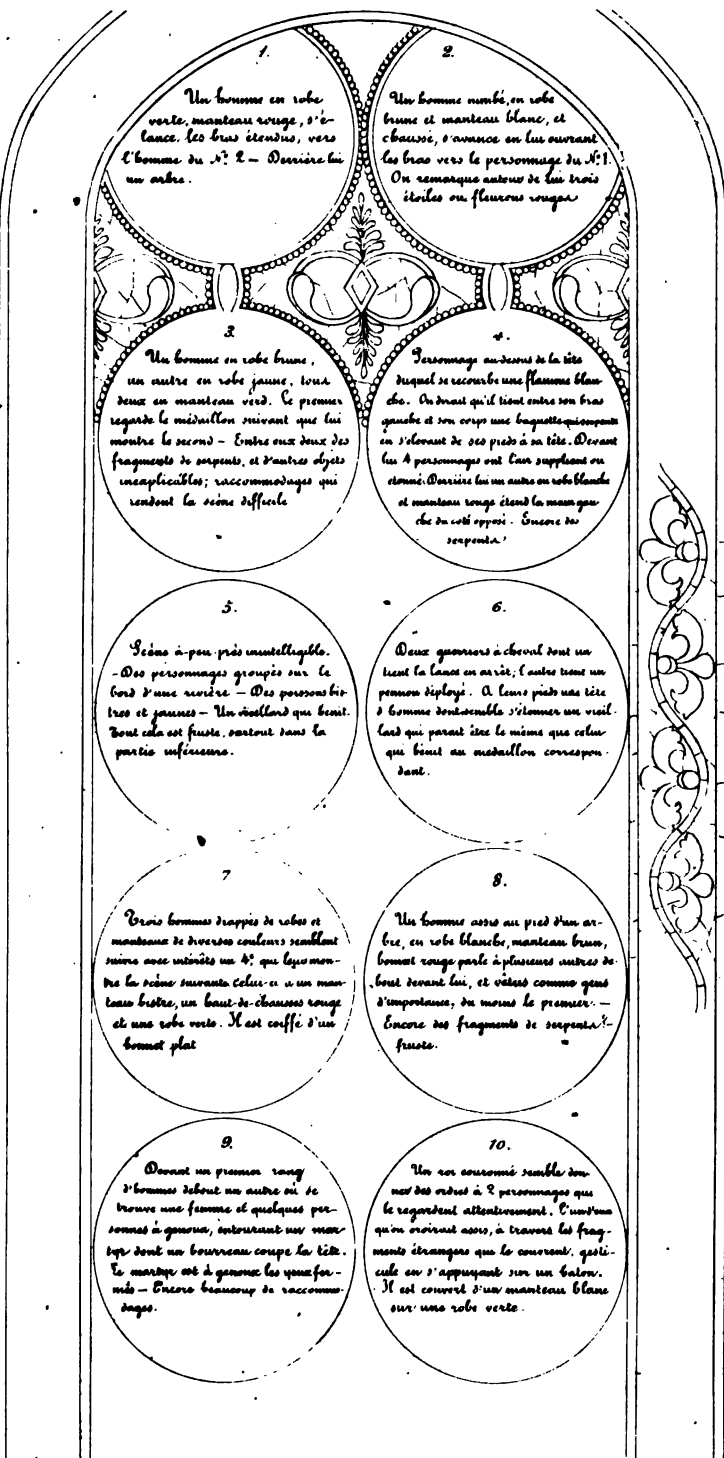 1.
Un homme en robe
verte, manteau rouge, s'é-
lance, les bras étendus, vers
l'homme du N.º 2 — Derrière lui
un arbre.
2.
Un homme nimbé, en robe
brune et manteau blanc, et
chaussé, s'avance en lui ouvrant
les bras vers le personnage du N.º 1.
On remarque autour de lui trois
étoiles ou fleurons rouges
3.
Un homme en robe brune,
un autre en robe jaune, tous
deux en manteau verd. Le premier
regarde le médaillon suivant que lui
montre le second — Entre eux deux des
fragments de serpents, et d'autres objets
inexplicables; raccommodages qui
rendent la scène difficile
4.
Personnage au-dessus de la tête
duquel se recourbe une flamme blan-
che. On dirait qu'il tient entre son bras
gauche et son corps une baguette qui serpente
en s'élevant de ses pieds à sa tête. Devant
lui 4 personnages ont l'air suppliant ou
étonné. Derrière lui un autre en robe blanche
et manteau rouge étend la main gau-
che du coté opposé. Encore des
serpents.
5.
Scène à-peu-près inintelligible.
- Des personnages groupés sur le
bord d'une rivière — Des poissons bis-
tres et jaunes — Un vieillard qui benit.
Tout cela est fruste, surtout dans la
partie inférieure.
6.
Deux guerriers à cheval dont un
tient la lance en arrêt; l'autre tient un
pennon déployé. A leurs pieds une tête
d'homme dont semble s'étonner un vieil-
lard qui parait être le même que celui
qui bénit au medaillon correspon-
dant.
7
Trois hommes drappés de robes et
manteaux de diverses couleurs semblent
suivre avec intérêts un 4.e qui leur mon-
tre la scène suivante. Celui-ci a un man-
teau bistre, un haut-de-chausses rouge
et une robe verte. Il est coiffé d'un
bonnet plat
8.
Un homme assis au pied d'un ar-
bre, en robe blanche, manteau brun,
bonnet rouge parle à plusieurs autres de-
bout devant lui, et vêtus comme gens
d'importance, du moins le premier. —
Encore des fragments de serpents —
fruste.
9.
Devant un premier rang
d'hommes debout un autre où se
trouve une femme et quelques per-
sonnes à genoux, entourant un mar-
tyr dont un bourreau coupe la tête.
Le martyr est à genoux les yeux fer-
més — Encore beaucoup de raccommo-
dages.
10.
Un roi couronné semble don-
ner des ordres à 2 personnages qui
le regardent attentivement. L'un d'eux
qu'on croirait assis, à travers les frag-
ments étrangers que le couvrent, gesti-
cule en s'appuyant sur un baton.
Il est couvert d'un manteau blanc
sur une robe verte.